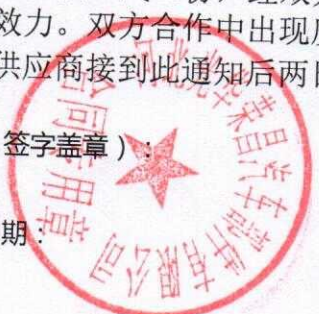 效力。双方合作中出现
供应商接到此通知后两日
签字盖章）：
期：
华荣昌汽车部件有限公司
合同专用章